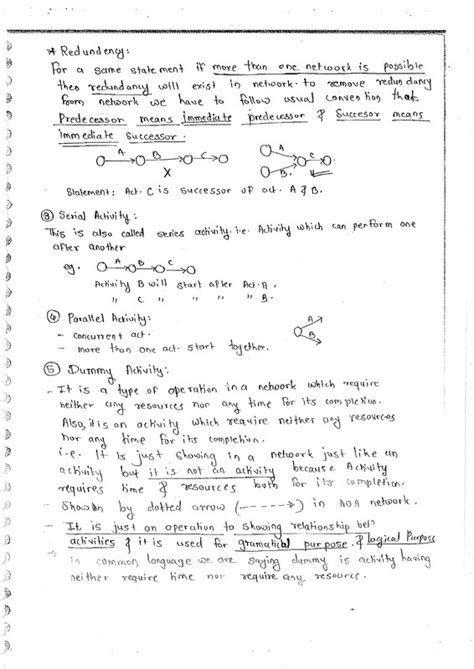 * Redundency:
For a same statement if more than one network is possible
then redundancy will exist in network. to remove redundancy
from network we have to follow usual convention that
Predecessor means immediate predecessor & Succesor means
immediate successor.
A B C A C
X B.
Statement: Act. C is successor of act. A & B.
③ Serial Activity:
This is also called series activity. i.e. Activity which can perform one
after another
eg. A B C
Activity B will start after Act. A.
" C " " " B.
④ Parallel Activity:
- concurrent act. A
- more than one act. start together. B
⑤ Dummy Activity:
- It is a type of operation in a network which require
neither any resources nor any time for its completion.
Also, it is an activity which require neither any resources
nor any time for its completion.
i.e. It is just showing in a network just like an
activity but it is not an activity because Activity
requires time & resources both for its completion.
- Shown by dotted arrow (----->) in AOA network.
- It is just an operation to showing relationship betn
activities & it is used for gramatical purpose. & logical Purpose
in common language we are saying dummy is activity having
neither require time nor require any resource.